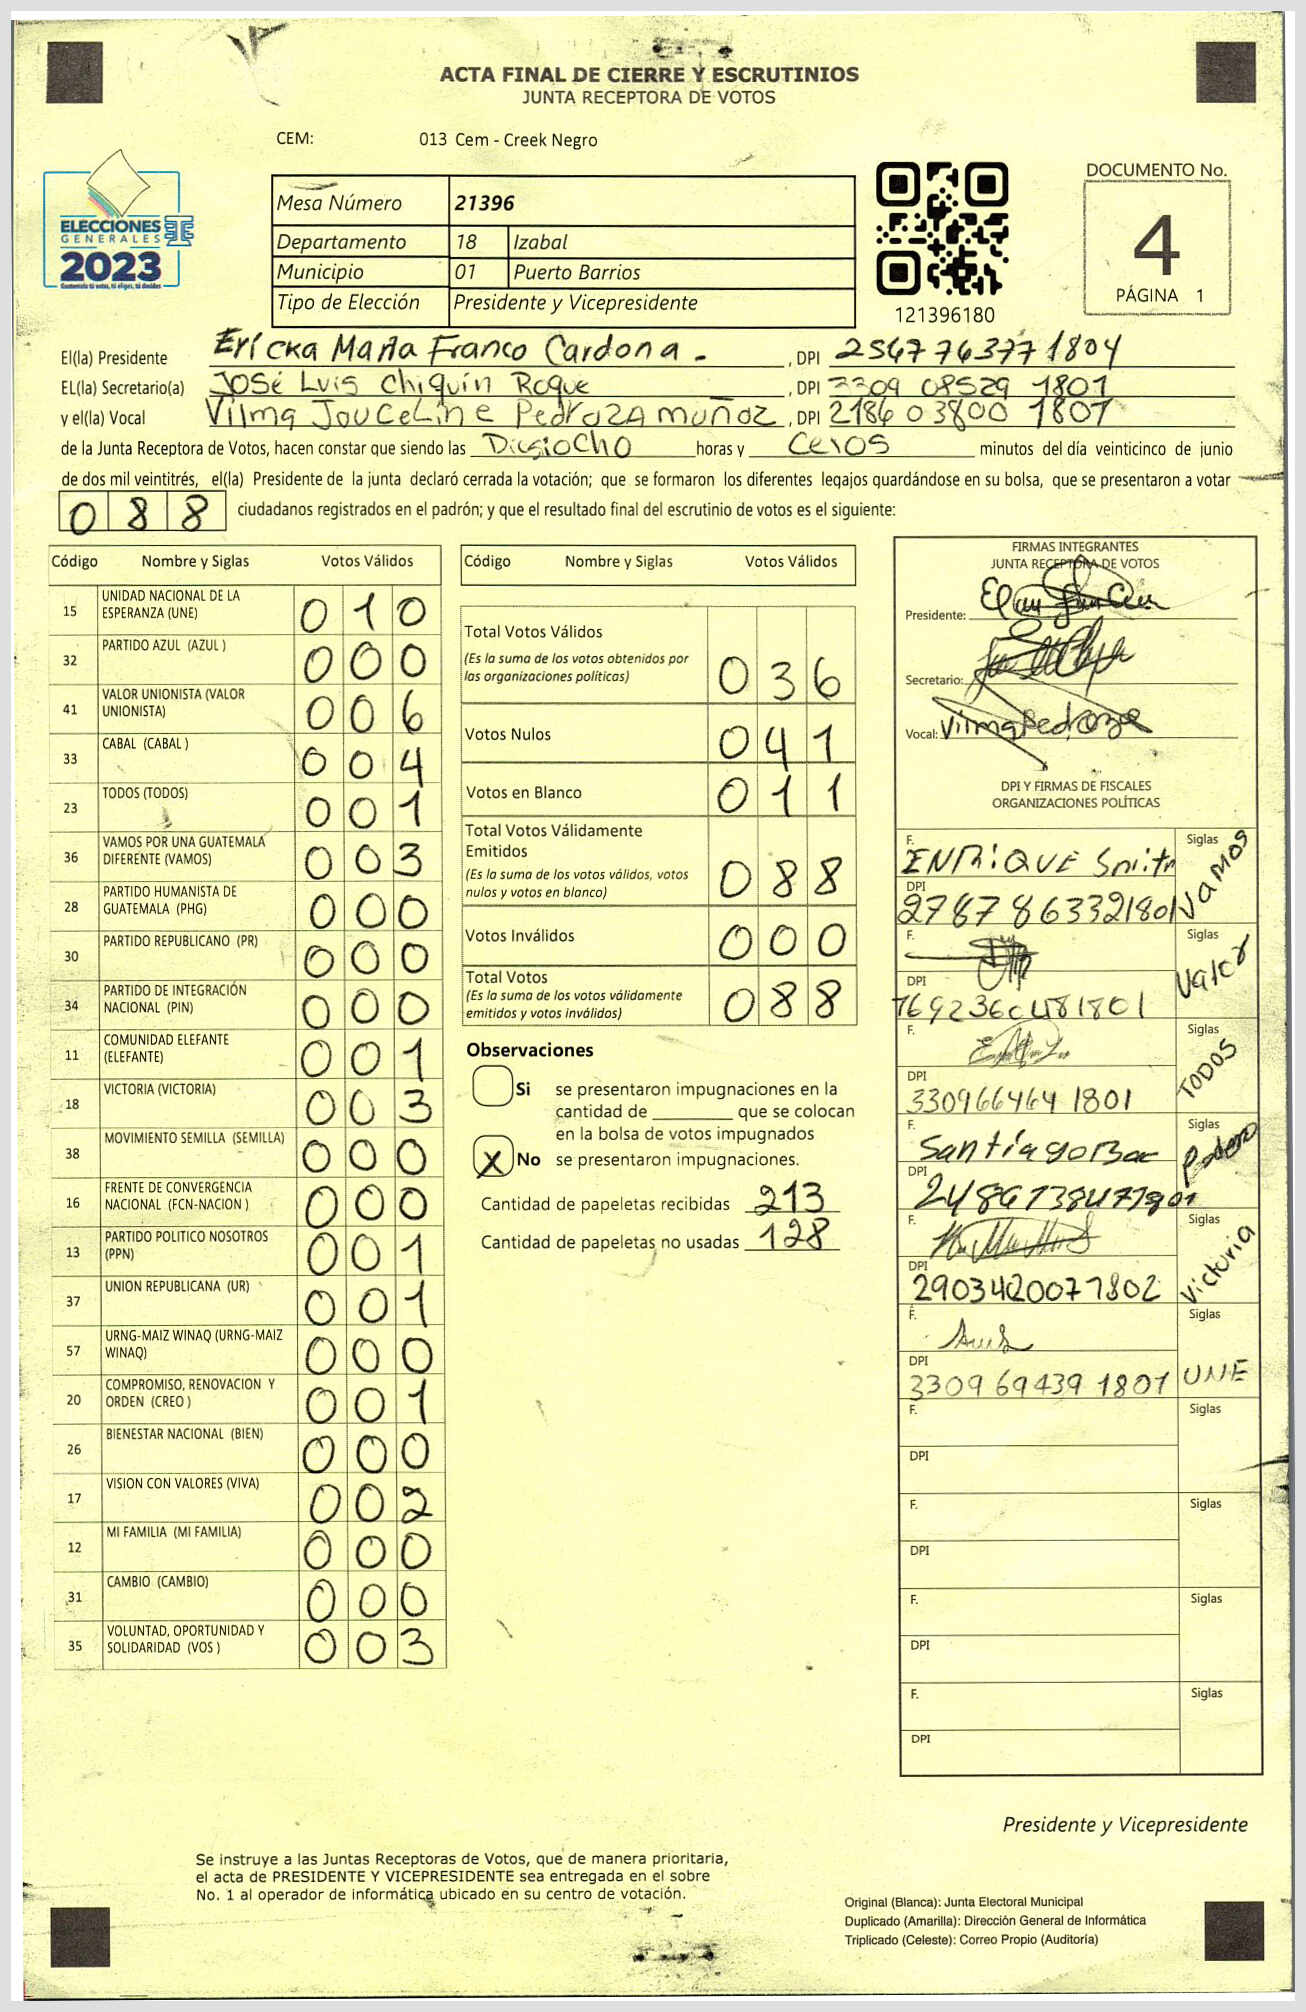 ACTA FINAL DE CIERRE Y ESCRUTINIOS
JUNTA RECEPTORA DE VOTOS
CEM: 013 Cem - Creek Negro
ELECCIONES
GENERALES
2023
Guatemala tú votas, tú eliges, tú decides
Mesa Número 21396
Departamento 18 Izabal
Municipio 01 Puerto Barrios
Tipo de Elección Presidente y Vicepresidente
121396180
DOCUMENTO No.
4
PÁGINA 1
El(la) Presidente Ericka Maria Franco Cardona. , DPI 2567763771804
EL(la) Secretario(a) José Luis Chiquín Roque , DPI 3309 08529 1801
y el(la) Vocal Vilma Jouceline Pedroza muñoz , DPI 2186 03800 1801
de la Junta Receptora de Votos, hacen constar que siendo las Diesiocho horas y Ceros minutos del día veinticinco de junio
de dos mil veintitrés, el(la) Presidente de la junta declaró cerrada la votación; que se formaron los diferentes legajos guardándose en su bolsa, que se presentaron a votar
088 ciudadanos registrados en el padrón; y que el resultado final del escrutinio de votos es el siguiente:
Código Nombre y Siglas Votos Válidos
15 UNIDAD NACIONAL DE LA ESPERANZA (UNE) 010
32 PARTIDO AZUL (AZUL ) 000
41 VALOR UNIONISTA (VALOR UNIONISTA) 006
33 CABAL (CABAL ) 004
23 TODOS (TODOS) 001
36 VAMOS POR UNA GUATEMALA DIFERENTE (VAMOS) 003
28 PARTIDO HUMANISTA DE GUATEMALA (PHG) 000
30 PARTIDO REPUBLICANO (PR) 000
34 PARTIDO DE INTEGRACIÓN NACIONAL (PIN) 000
11 COMUNIDAD ELEFANTE (ELEFANTE) 001
18 VICTORIA (VICTORIA) 003
38 MOVIMIENTO SEMILLA (SEMILLA) 000
16 FRENTE DE CONVERGENCIA NACIONAL (FCN-NACION ) 000
13 PARTIDO POLITICO NOSOTROS (PPN) 001
37 UNION REPUBLICANA (UR) 001
57 URNG-MAIZ WINAQ (URNG-MAIZ WINAQ) 000
20 COMPROMISO, RENOVACION Y ORDEN (CREO ) 001
26 BIENESTAR NACIONAL (BIEN) 000
17 VISION CON VALORES (VIVA) 002
12 MI FAMILIA (MI FAMILIA) 000
31 CAMBIO (CAMBIO) 000
35 VOLUNTAD, OPORTUNIDAD Y SOLIDARIDAD (VOS ) 003
Código Nombre y Siglas Votos Válidos
Total Votos Válidos 036
(Es la suma de los votos obtenidos por
las organizaciones políticas)
Votos Nulos 041
Votos en Blanco 011
Total Votos Válidamente
Emitidos 088
(Es la suma de los votos válidos, votos
nulos y votos en blanco)
Votos Inválidos 000
Total Votos 088
(Es la suma de los votos válidamente
emitidos y votos inválidos)
Observaciones
Si se presentaron impugnaciones en la
cantidad de ________ que se colocan
en la bolsa de votos impugnados
X No se presentaron impugnaciones.
Cantidad de papeletas recibidas 213
Cantidad de papeletas no usadas 128
FIRMAS INTEGRANTES
JUNTA RECEPTORA DE VOTOS
Presidente:
Secretario:
Vocal: Vilma Pedroza
DPI Y FIRMAS DE FISCALES
ORGANIZACIONES POLÍTICAS
F. ENRIQUE Smith Siglas Vamos
DPI 2787863321801
F. Siglas Valor
DPI 1692360481801
F. Siglas TODOS
DPI 330966464 1801
F. Santiago Siglas
DPI
F. Siglas Victoria
DPI 2903420071802
F. Siglas UNE
DPI 3309 69439 1801
F. Siglas
DPI
F. Siglas
DPI
F. Siglas
DPI
F. Siglas
DPI
Presidente y Vicepresidente
Se instruye a las Juntas Receptoras de Votos, que de manera prioritaria,
el acta de PRESIDENTE Y VICEPRESIDENTE sea entregada en el sobre
No. 1 al operador de informática ubicado en su centro de votación.
Original (Blanca): Junta Electoral Municipal
Duplicado (Amarilla): Dirección General de Informática
Triplicado (Celeste): Correo Propio (Auditoría)